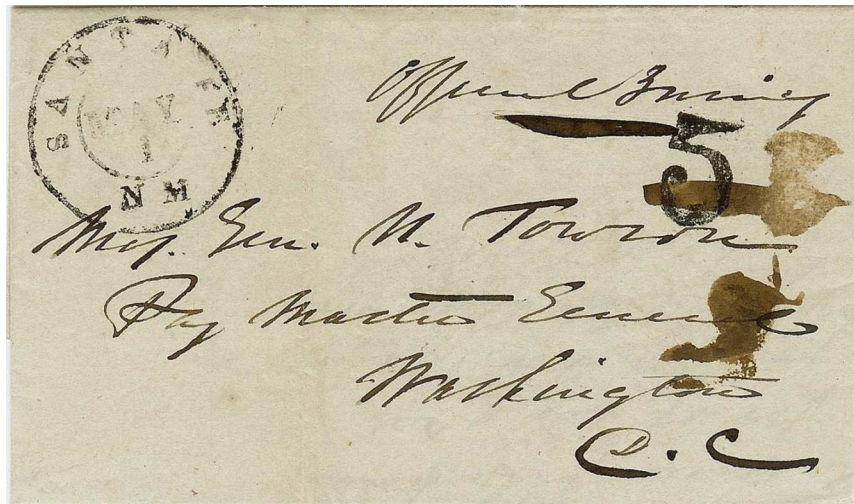 SANTA FE
MAY
1
NM
Official Business
5
Maj. Gen. N. Towson
Pay Master General
Washington
D.C